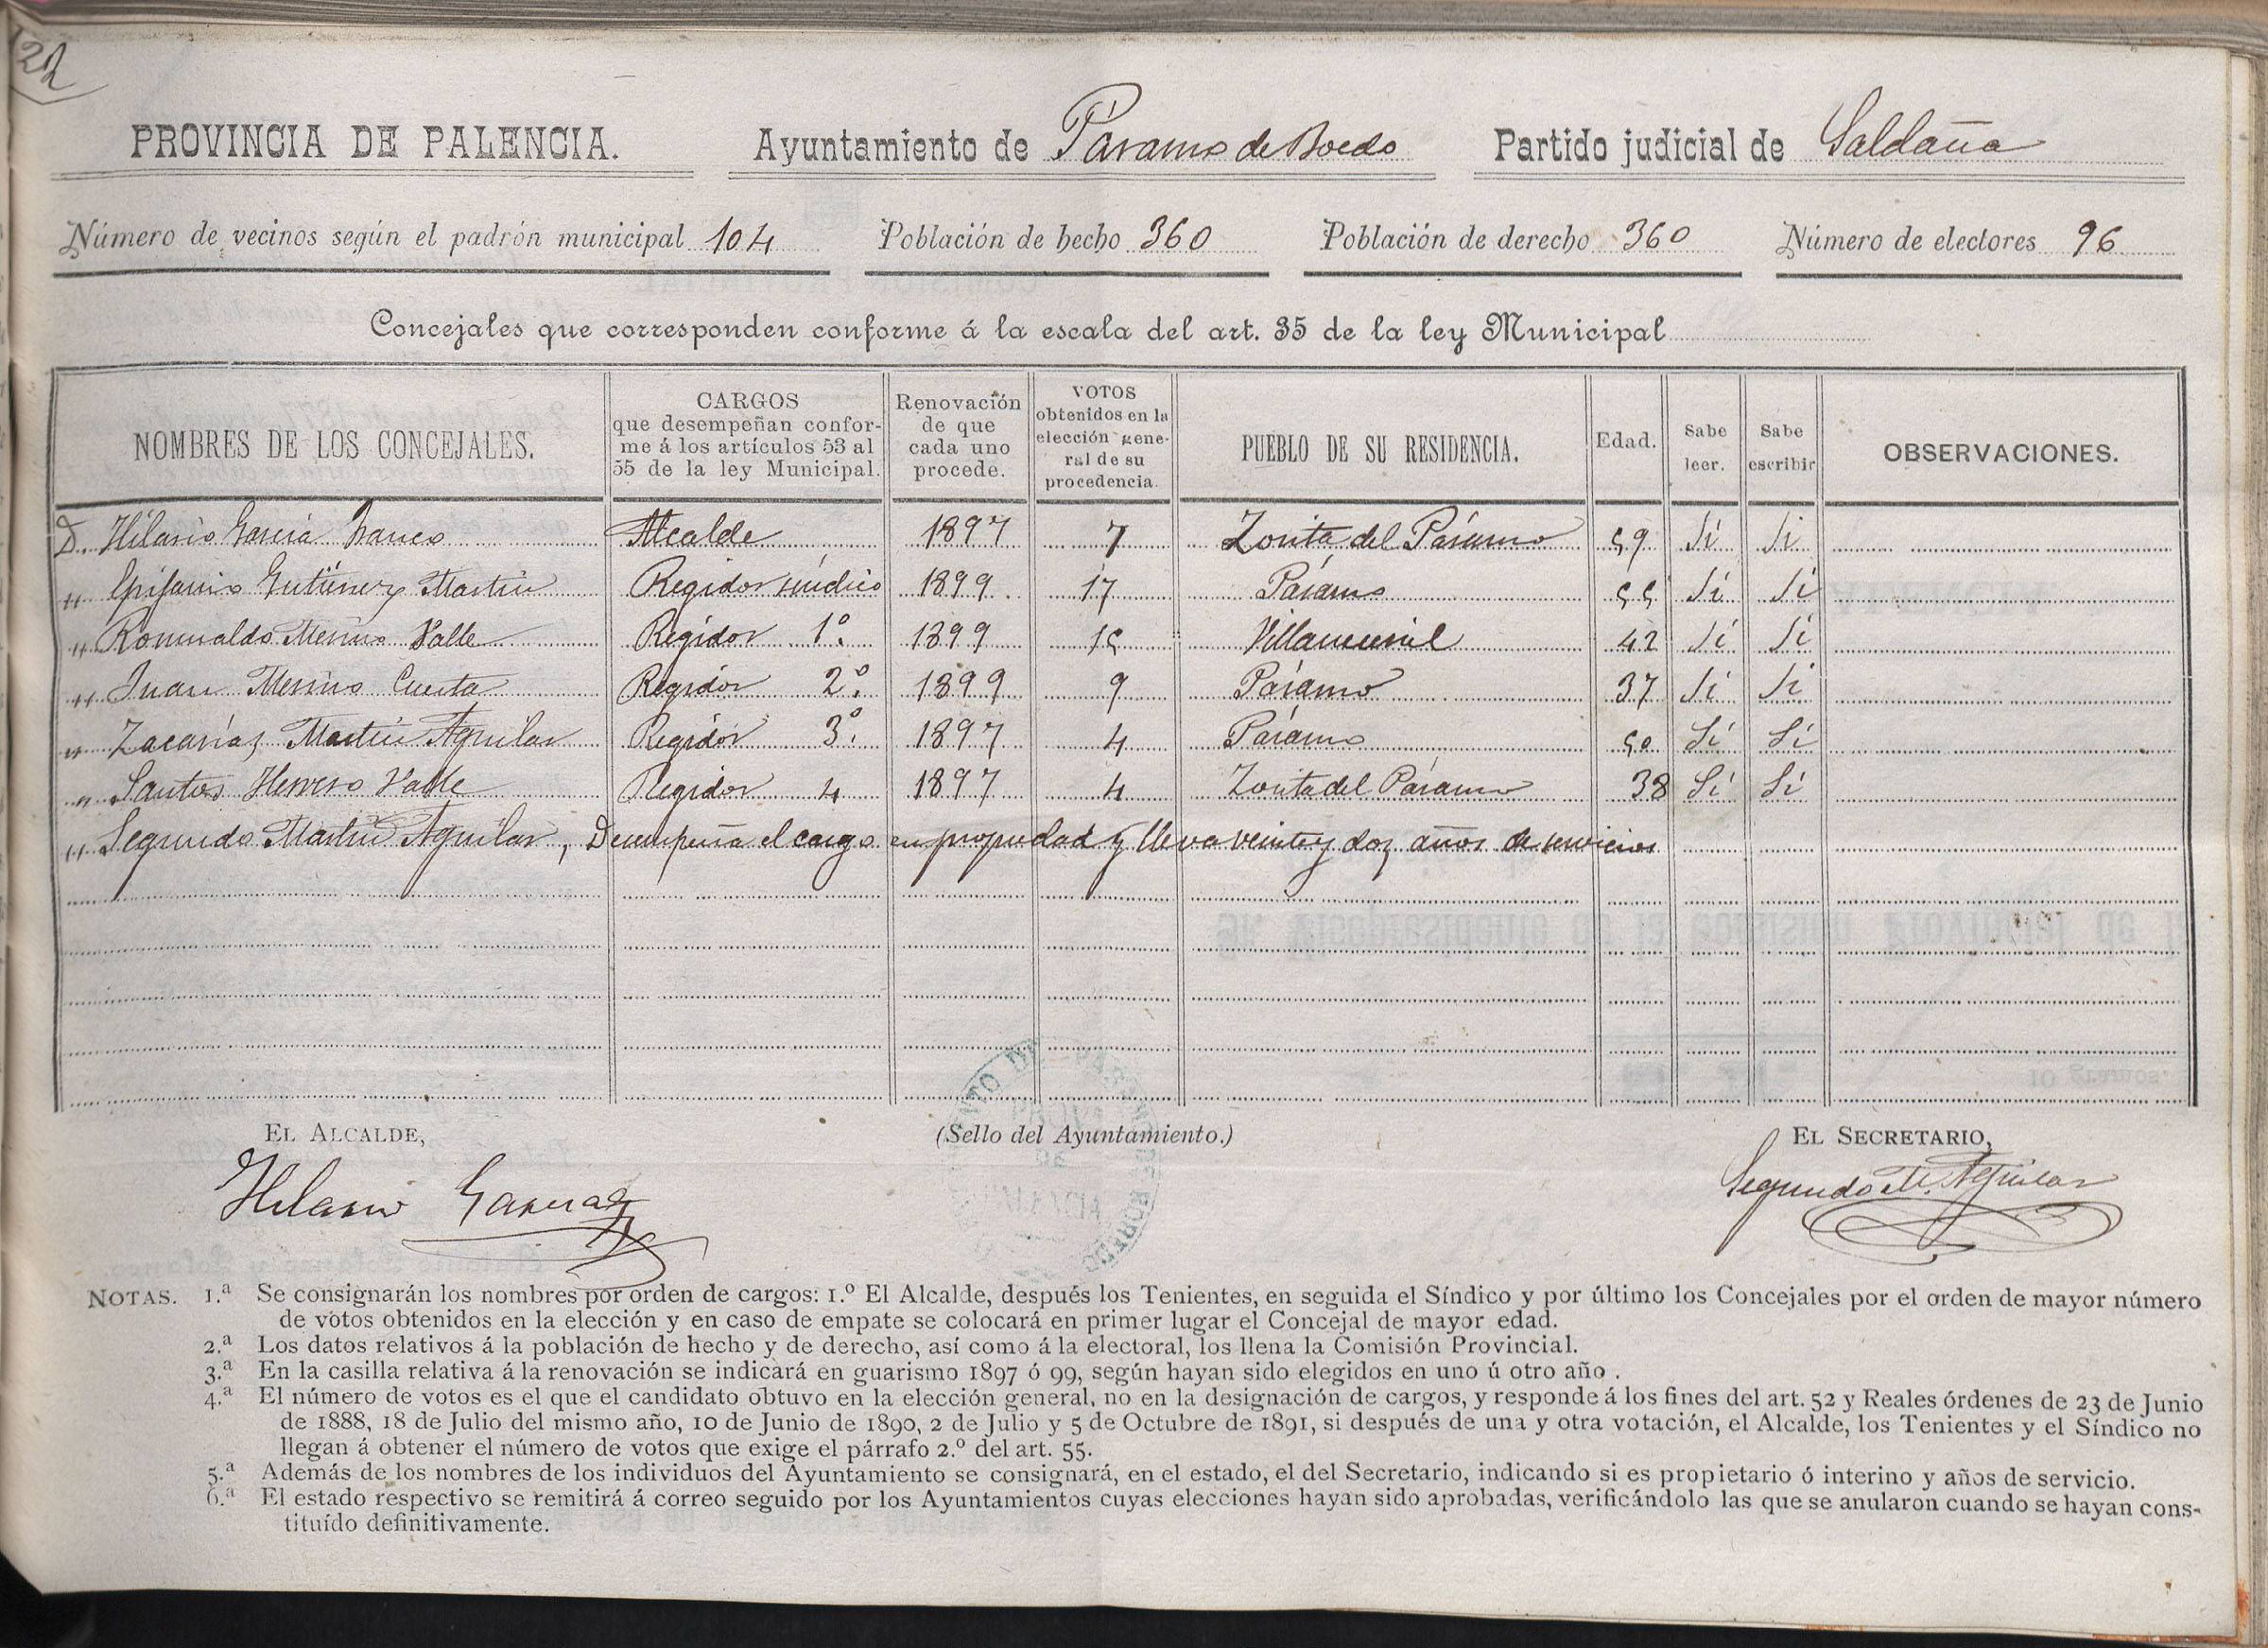 22
PROVINCIA DE PALENCIA. Ayuntamiento de Páramo de Boedo Partido judicial de Saldaña
Número de vecinos según el padrón municipal 104 Población de hecho 360 Población de derecho 360 Número de electores 96
Concejales que corresponden conforme á la escala del art. 35 de la ley Municipal
NOMBRES DE LOS CONCEJALES. CARGOS que desempeñan conforme á los artículos 53 al 55 de la ley Municipal. Renovación de que cada uno procede. VOTOS obtenidos en la elección general de su procedencia. PUEBLO DE SU RESIDENCIA. Edad. Sabe leer. Sabe escribir OBSERVACIONES.
D. Hilario García Franco Alcalde 1897 7 Zorita del Páramo 59 Sí Si
" Epifanio Gutiérrez Martin Regidor síndico 1899 17 Páramo 55 Sí Sí
" Romualdo Merino Valle Regidor 1º. 1899 15 42 Sí Sí
" Juan Merino Cuesta Regidor 2º. 1899 9 Páramo 37 Si Si
" Zacarías Martin Aguilar Regidor 3º. 1897 4 Páramo 50 Sí Sí
" Santos Herrero Valle Regidor 4 1897 4 Zorita del Páramo 38 Sí Sí
" Segundo Martin Aguilar, Desempeña el cargo en propiedad y lleva veinte y dos años de servicios
EL ALCALDE, (Sello del Ayuntamiento.) EL SECRETARIO,
Hilario García Segundo M. Aguilar
NOTAS. 1.ª Se consignarán los nombres por orden de cargos: 1.º El Alcalde, después los Tenientes, en seguida el Síndico y por último los Concejales por el orden de mayor número
de votos obtenidos en la elección y en caso de empate se colocará en primer lugar el Concejal de mayor edad.
2.ª Los datos relativos á la población de hecho y de derecho, así como á la electoral, los llena la Comisión Provincial.
3.ª En la casilla relativa á la renovación se indicará en guarismo 1897 ó 99, según hayan sido elegidos en uno ú otro año .
4.ª El número de votos es el que el candidato obtuvo en la elección general, no en la designación de cargos, y responde á los fines del art. 52 y Reales órdenes de 23 de Junio
de 1888, 18 de Julio del mismo año, 10 de Junio de 1890, 2 de Julio y 5 de Octubre de 1891, si después de una y otra votación, el Alcalde, los Tenientes y el Síndico no
llegan á obtener el número de votos que exige el párrafo 2.º del art. 55.
5.ª Además de los nombres de los individuos del Ayuntamiento se consignará, en el estado, el del Secretario, indicando si es propietario ó interino y años de servicio.
6.ª El estado respectivo se remitirá á correo seguido por los Ayuntamientos cuyas elecciones hayan sido aprobadas, verificándolo las que se anularon cuando se hayan cons-
tituído definitivamente.